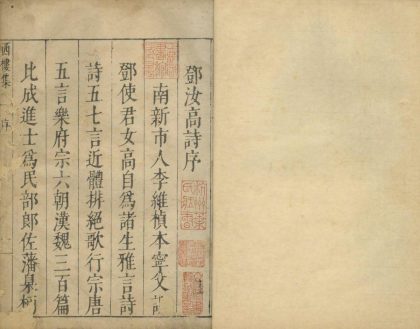 鄧汝高詩序
南新市人李維楨本寧父譔
鄧使君女高自為諸生雅言詩
詩五七言近體排絕歌行宗唐
五言樂府宗六朝漢魏三百篇
比成進士為民部郎佐藩臬柄
西樓集
序